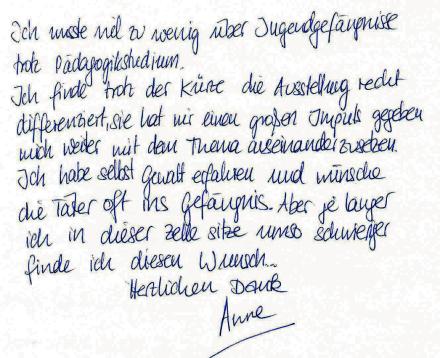 Ich wusste viel zu wenig über Jugendgefängnisse
trotz Pädagogikstudium.
Ich finde trotz der Kürze die Ausstellung recht
differenziert, sie hat mir einen großen Impuls gegeben
mich weiter mit dem Thema auseinanderzusetzen.
Ich habe selbst Gewalt erfahren und wünsche
die Täter oft ins Gefängnis. Aber je länger
ich in dieser Zelle sitze umso schwieriger
finde ich diesen Wunsch...
Herzlichen Dank
Anne